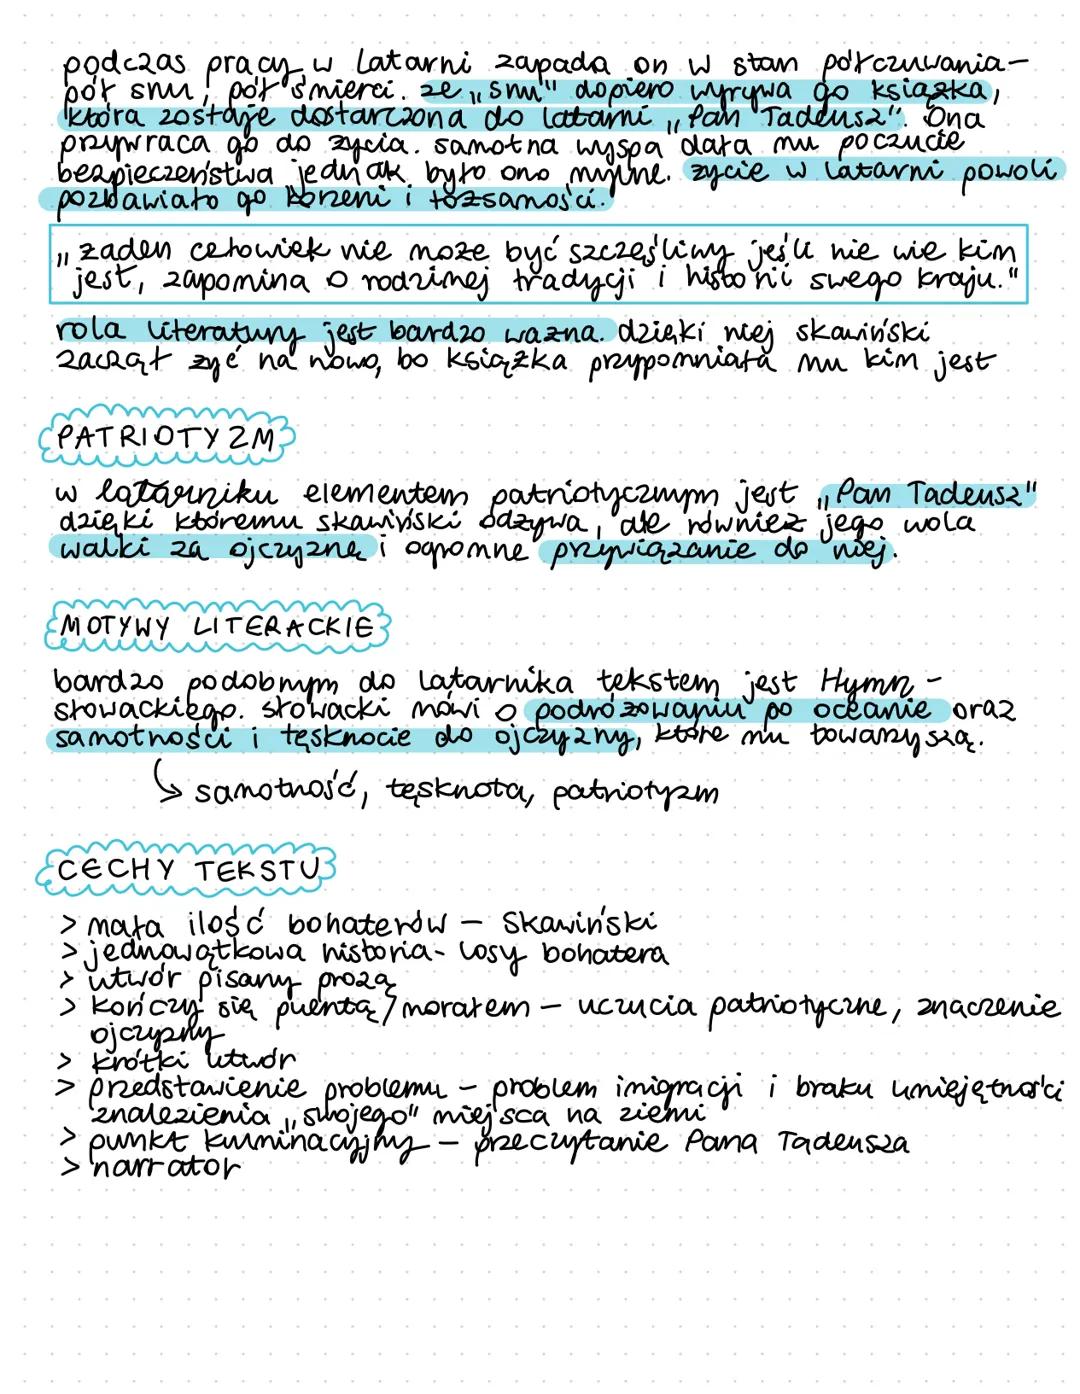 podczas pracy w latarni zapada on w stan półczuwania-
pół snu, pół śmierci. ze „snu" dopiero wyrywa go książka,
która zostaje dostarczona do latarni „Pan Tadeusz". Ona
przywraca go do życia. samotna wyspa dała mu poczucie
bezpieczeństwa jednak było ono mylne. życie w latarni powoli
pozbawiało go korzeni i tożsamości.
„żaden człowiek nie może być szczęśliwy jeśli nie wie kim
jest, zapomina o rodzinej tradycji i historii swego kraju."
rola literatury jest bardzo ważna. dzięki niej skawiński
zaczął żyć na nowo, bo książka przypomniała mu kim jest
PATRIOTYZM
w latarniku elementem patriotycznym jest „Pan Tadeusz"
dzięki któremu skawiński odżywa, ale również jego wola
walki za ojczyznę i ogromne przywiązanie do niej.
MOTYWY LITERACKIE
bardzo podobnym do latarnika tekstem jest Hymn -
słowackiego. słowacki mówi o podróżowaniu po oceanie oraz
samotności i tęsknocie do ojczyzny, które mu towarzyszą.
↳ samotność, tęsknota, patriotyzm
CECHY TEKSTU
> mała ilość bohaterów - Skawiński
> jednowątkowa historia- losy bohatera
> utwór pisany prozą
> kończy się puentą/morałem - uczucia patriotyczne, znaczenie
ojczyzny
> krótki utwór
> przedstawienie problemu - problem imigracji i braku umiejętności
znalezienia „swojego" miejsca na ziemi
> punkt kuminacyjny - przeczytanie Pana Tadeusza
> narrator